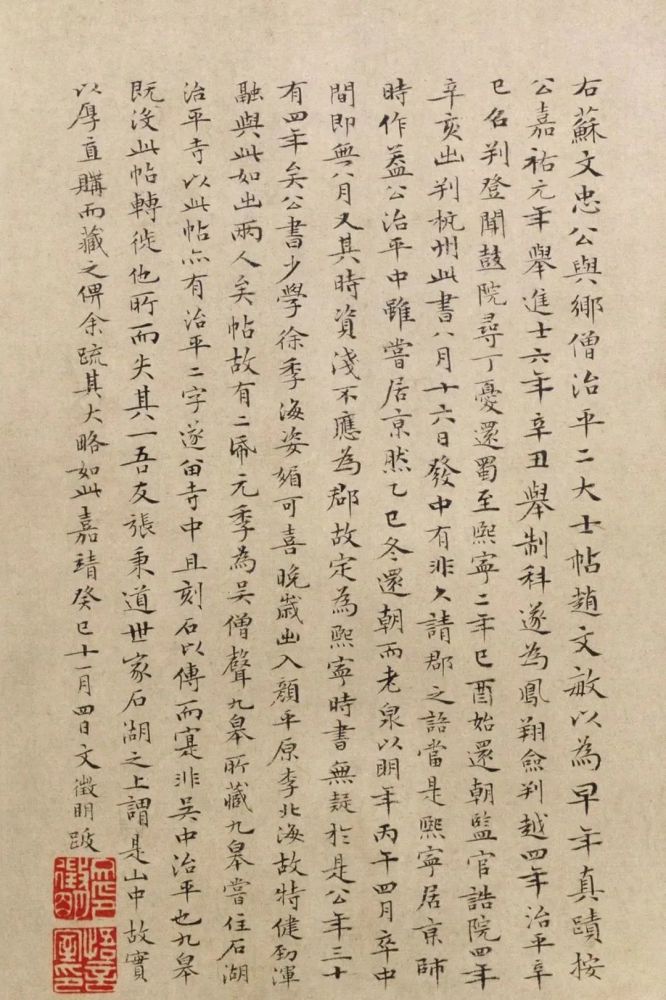 右蘇文忠公與鄉僧治平二大士帖趙文敏以為早年真蹟按
公嘉祐元年舉進士六年辛丑舉制科遂為鳳翔僉判越四年治平辛
巳名判登聞鼓院尋丁憂還蜀至熙寧二年巳酉始還朝監官誥院四年
辛亥出判杭州此書八月十六日發中有非久請郡之語當是熙寧居京師
時作蓋公治平中雖嘗居京然乙巳冬還朝而老泉以明年丙午四月卒中
間即無八月又其時資淺不應為郡故定為熙寧時書無疑於是公年三十
有四年矣公書少學徐季海姿媚可喜晚歲出入顏平原李北海故特健勁渾
融與此如出兩人矣帖故有二帋元季為吳僧聲九皋所藏九皋嘗住石湖
治平寺以此帖亦有治平二字遂留寺中且刻石以傳而寔非吳中治平也九皋
既沒此帖轉徙他所而失其一吾友張秉道世家石湖之上謂是山中故實
以厚直購而藏之俾余疏其大略如此嘉靖癸巳十一月四日文徵明跋
徵明